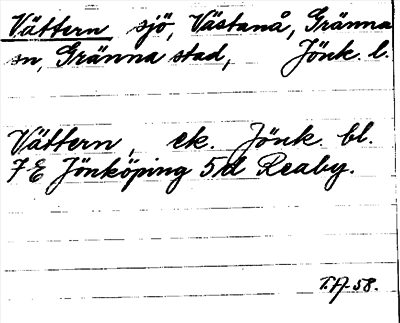 Vättern sjö, Västanå, Gränna
sn, Gränna stad, Jönk. l.
Vättern, ek. Jönk. bl.
7E Jönköping 5d Reaby.
T.A-58.